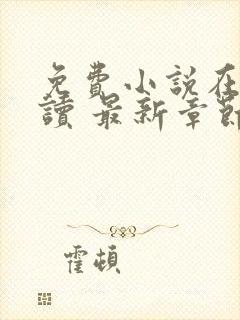 免費小説在
讀 最新章節
霍頓